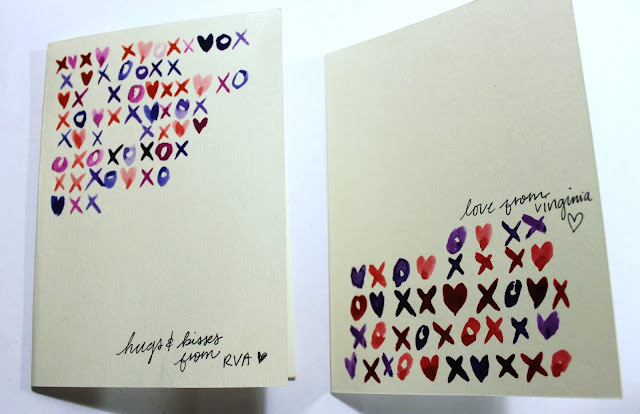 hugs & kisses
from RVA
love from
virginia